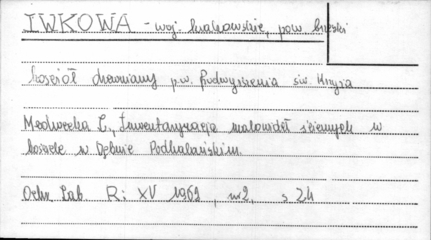 IWKOWA - woj. krakowskie, pow. brzeski
kościół drewniany p.w. Podwyższenia św. Krzyża
Medwecka L., Inwentaryzacja malowideł ściennych w
kościele w Dębnie Podhalańskim.
Ochr. Zab. R: XV 1962, nr 2, s 24